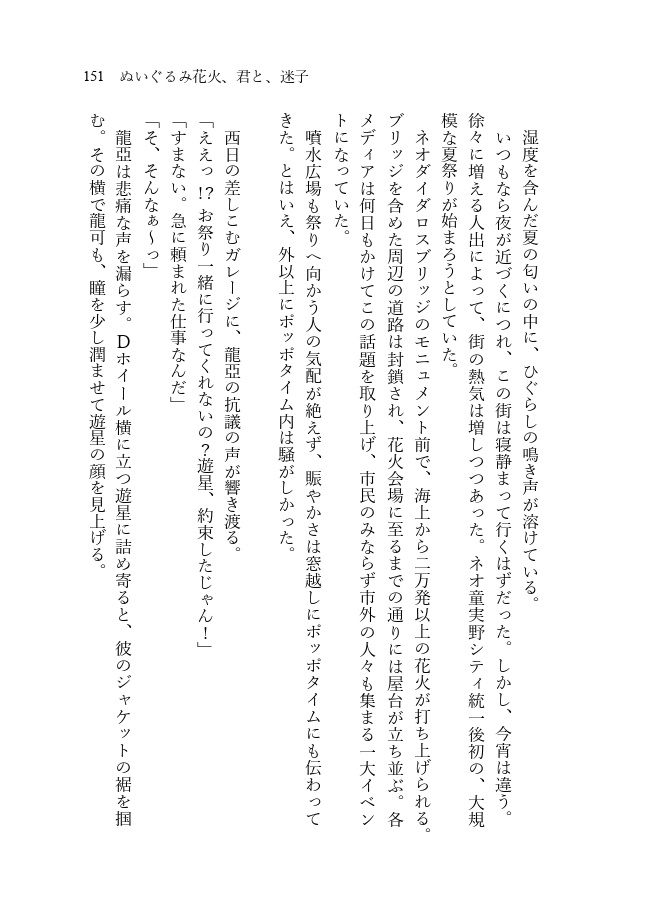 151　ぬいぐるみ花火、君と、迷子
湿度を含んだ夏の匂いの中に、ひぐらしの鳴き声が溶けている。
いつもなら夜が近づくにつれ、この街は寝静まって行くはずだった。しかし、今宵は違う。
徐々に増える人出によって、街の熱気は増しつつあった。ネオ童実野シティ統一後初の、大規
模な夏祭りが始まろうとしていた。
ネオダイダロスブリッジのモニュメント前で、海上から二万発以上の花火が打ち上げられる。
ブリッジを含めた周辺の道路は封鎖され、花火会場に至るまでの通りには屋台が立ち並ぶ。各
メディアは何日もかけてこの話題を取り上げ、市民のみならず市外の人々も集まる一大イベン
トになっていた。
噴水広場も祭りへ向かう人の気配が絶えず、賑やかさは窓越しにポッポタイムにも伝わって
きた。とはいえ、外以上にポッポタイム内は騒がしかった。
西日の差しこむガレージに、龍亞の抗議の声が響き渡る。
「ええっ!? お祭り一緒に行ってくれないの？遊星、約束したじゃん！」
「すまない。急に頼まれた仕事なんだ」
「そ、そんなぁ～っ」
龍亞は悲痛な声を漏らす。Ｄホイール横に立つ遊星に詰め寄ると、彼のジャケットの裾を掴
む。その横で龍可も、瞳を少し潤ませて遊星の顔を見上げる。